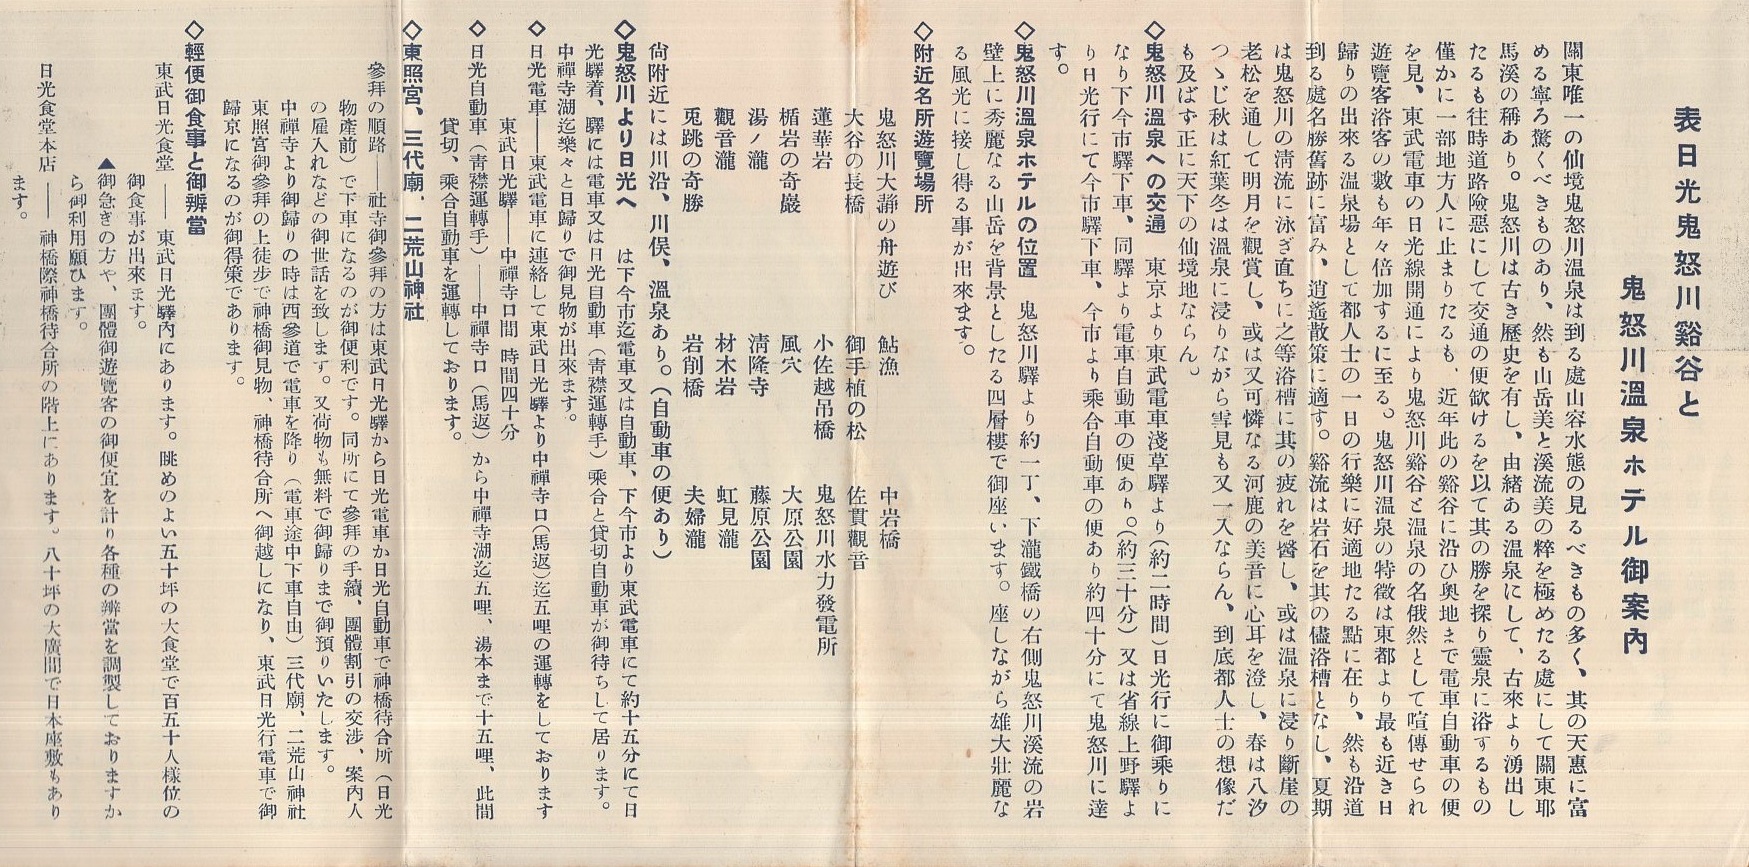 表日光鬼怒川谿谷と
鬼怒川溫泉ホテル御案內
關東唯一の仙境鬼怒川溫泉は到る處山容水態の見るべきもの多く、其の天惠に富
める寧ろ驚くべきものあり、然も山岳美と溪流美の粹を極めたる處にして關東耶
馬溪の稱あり。鬼怒川は古き歷史を有し、由緖ある溫泉にして、古來より湧出し
たるも往時道路險惡にして交通の便歓けるを以て其の勝を探り靈泉に浴するもの
僅かに一部地方人に止まりたるも、近年此の谿谷に沿ひ奧地まで電車自動車の便
を見、東武電車の日光線開通により鬼怒川谿谷と溫泉の名俄然として喧傳せられ
遊覽客浴客の數も年々倍加するに至る。鬼怒川溫泉の特徵は東都より最も近き日
歸りの出來る溫泉場として都人士の一日の行樂に好適地たる點に在り、然も沿道
到る處名勝舊跡に富み、逍遙散策に適す。谿流は岩石を其の儘浴槽となし、夏期
は鬼怒川の淸流に泳ぎ直ちに之等浴槽に其の疲れを醫し、或は溫泉に浸り斷崖の
老松を通して明月を觀賞し、或は又可憐なる河鹿の美音に心耳を澄し、春は八汐
つゝじ秋は紅葉冬は溫泉に浸りながら雪見も又一入ならん、到底都人士の想像だ
も及ばず正に天下の仙境地ならん。
◇鬼怒川溫泉への交通　東京より東武電車淺草驛より(約二時間)日光行に御乘りに
なり下今市驛下車、同驛より電車自動車の便あり。(約三十分)又は省線上野驛よ
り日光行にて今市驛下車、今市より乘合自動車の便あり約四十分にて鬼怒川に達
す。
◇鬼怒川溫泉ホテルの位置　鬼怒川驛より約一丁、下瀧鐵橋の右側鬼怒川溪流の岩
壁上に秀麗なる山岳を背景としたる四層樓で御座います。座しながら雄大壯麗な
る風光に接し得る事が出來ます。
◇附近名所遊覽場所
鬼怒川大瀞の舟遊び　鮎漁　中岩橋
大谷の長橋　御手植の松　佐貫觀音
蓮華岩　小佐越吊橋　鬼怒川水力發電所
楯岩の奇巖　風穴　大原公園
湯ノ瀧　淸隆寺　藤原公園
觀音瀧　材木岩　虹見瀧
兎跳の奇勝　岩削橋　夫婦瀧
尙附近には川沿、川俣、溫泉あり。(自動車の便あり)
◇鬼怒川より日光へ　は下今市迄電車又は自動車、下今市より東武電車にて約十五分にて日
光驛着、驛には電車又は日光自動車(靑襟運轉手)乘合と貸切自動車が御待ちして居ります。
中禪寺湖迄樂々と日歸りで御見物が出來ます。
◇日光電車――東武電車に連絡して東武日光驛より中禪寺口(馬返)迄五哩の運轉をしております
東武日光驛――中禪寺口間 時間四十分
◇日光自動車(靑襟運轉手)――中禪寺口(馬返)から中禪寺湖迄五哩、湯本まで十五哩、此間
貸切、乘合自動車を運轉しております。
◇東照宮、三代廟、二荒山神社
參拜の順路――社寺御參拜の方は東武日光驛から日光電車か日光自動車で神橋待合所(日光
物產前)で下車になるのが御便利です。同所にて參拜の手續、團體割引の交渉、案內人
の雇入れなどの御世話を致します。又荷物も無料で御歸りまで御預りいたします。
中禪寺より御歸りの時は西參道で電車を降り(電車途中下車自由)三代廟、二荒山神社
東照宮御參拜の上徒步で神橋御見物、神橋待合所へ御越しになり、東武日光行電車で御
歸京になるのが御得策であります。
◇輕便御食事と御辨當
東武日光食堂――東武日光驛內にあります。眺めのよい五十坪の大食堂で百五十人樣位の
御食事が出來ます。
▲御急ぎの方や、團體御遊覽客の御便宜を計り各種の辨當を調製しておりますか
ら御利用願ひます。
日光食堂本店――神橋際神橋待合所の階上にあります。八十坪の大廣間で日本座敷もあり
ます。